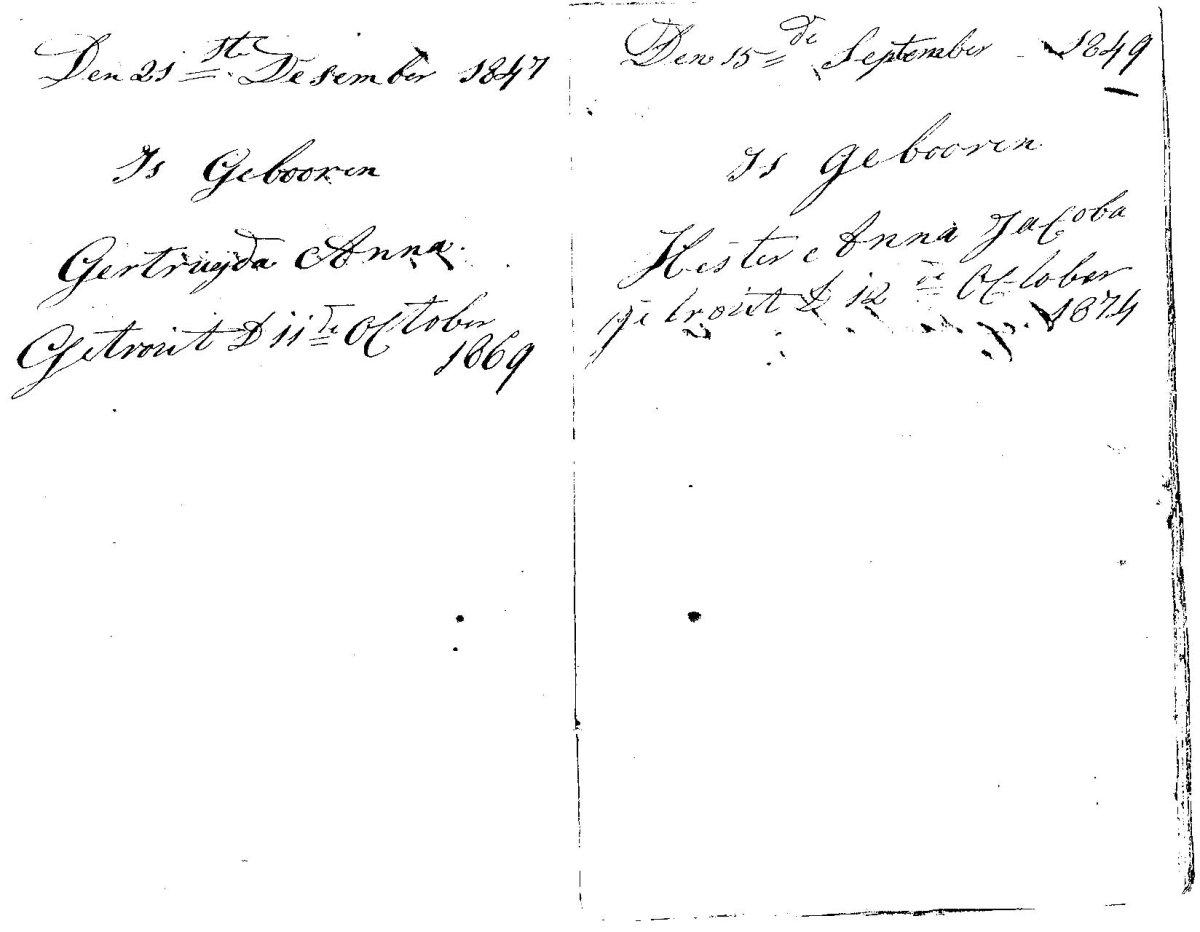 Den 21 ste Desember 1847
Is Gebooren
Gertruyda Anna
Getrout D 11 de October
1869
Den 15 de September 1849
Is gebooren
Hester Anna Jacoba
getrout D 12 de October
1874